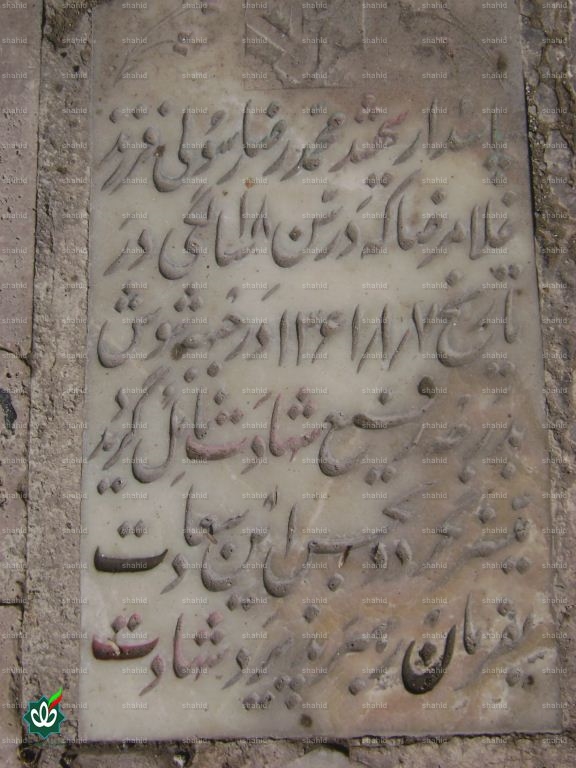 پاسدار شهید محمد رضا رسولی فرزند
غلامرضا که در سن ۱۸ سالگی در
تاریخ ۱۳۶۱/۸/۷ در جبهه شوش
بدرجه رفیع شهادت نائل گردید
کس این سعادت
بفرمان رهبر شهادت